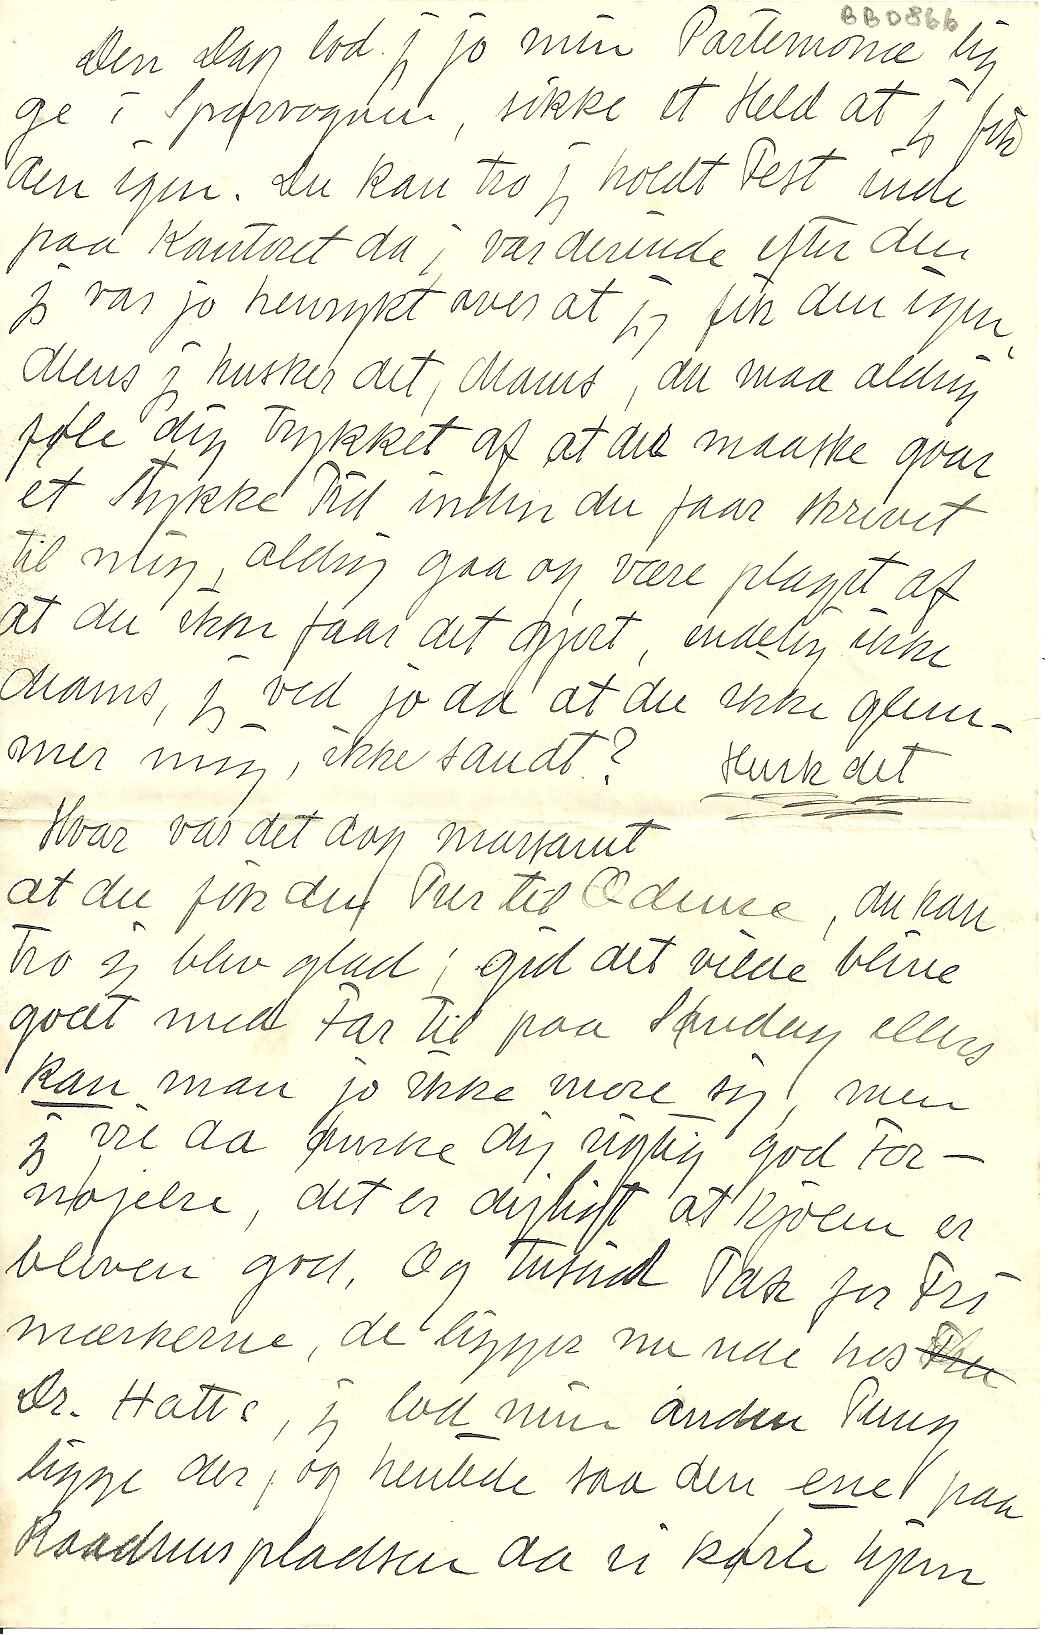 BBD866
Den Dag lod jeg jo min Portemonæ lig
ge i Sporvognen, sikke et Held at jeg fik
den igen. Du kan tro jeg holdt Fest inde
paa Kontoret da j var derinde efter den
jeg var jo henrykt over at jeg fik den igen,
Mens jeg husker det, Mams, du maa aldrig
føle dig trykket af at der maaske gaar
et Stykke Tid inden du faar skrevet
til mig, aldrig gaa og være plaget af
at du ikke faar det gjort, endelig ikke
Mams, jeg ved jo da at du ikke glem-
mer mig, ikke sandt? Husk det
Hvor var det dog morsomt
at du fik den Tur til Odense, du kan
tro jeg blev glad; gid det vilde blive
godt med Far til paa Søndag ellers
kan man jo ikke more sig, men
jeg vil da ønske dig rigtig god For-
nøjelse, det er dejligt at Kjolen er
bleven god. Og tusind Tak for Fri
mærkerne, de ligger nu ude hos
Dr. Hatts, jeg lod min anden Pung
ligge der, og hentede saa den ene paa
Raadhuspladsen da vi kørte hjem